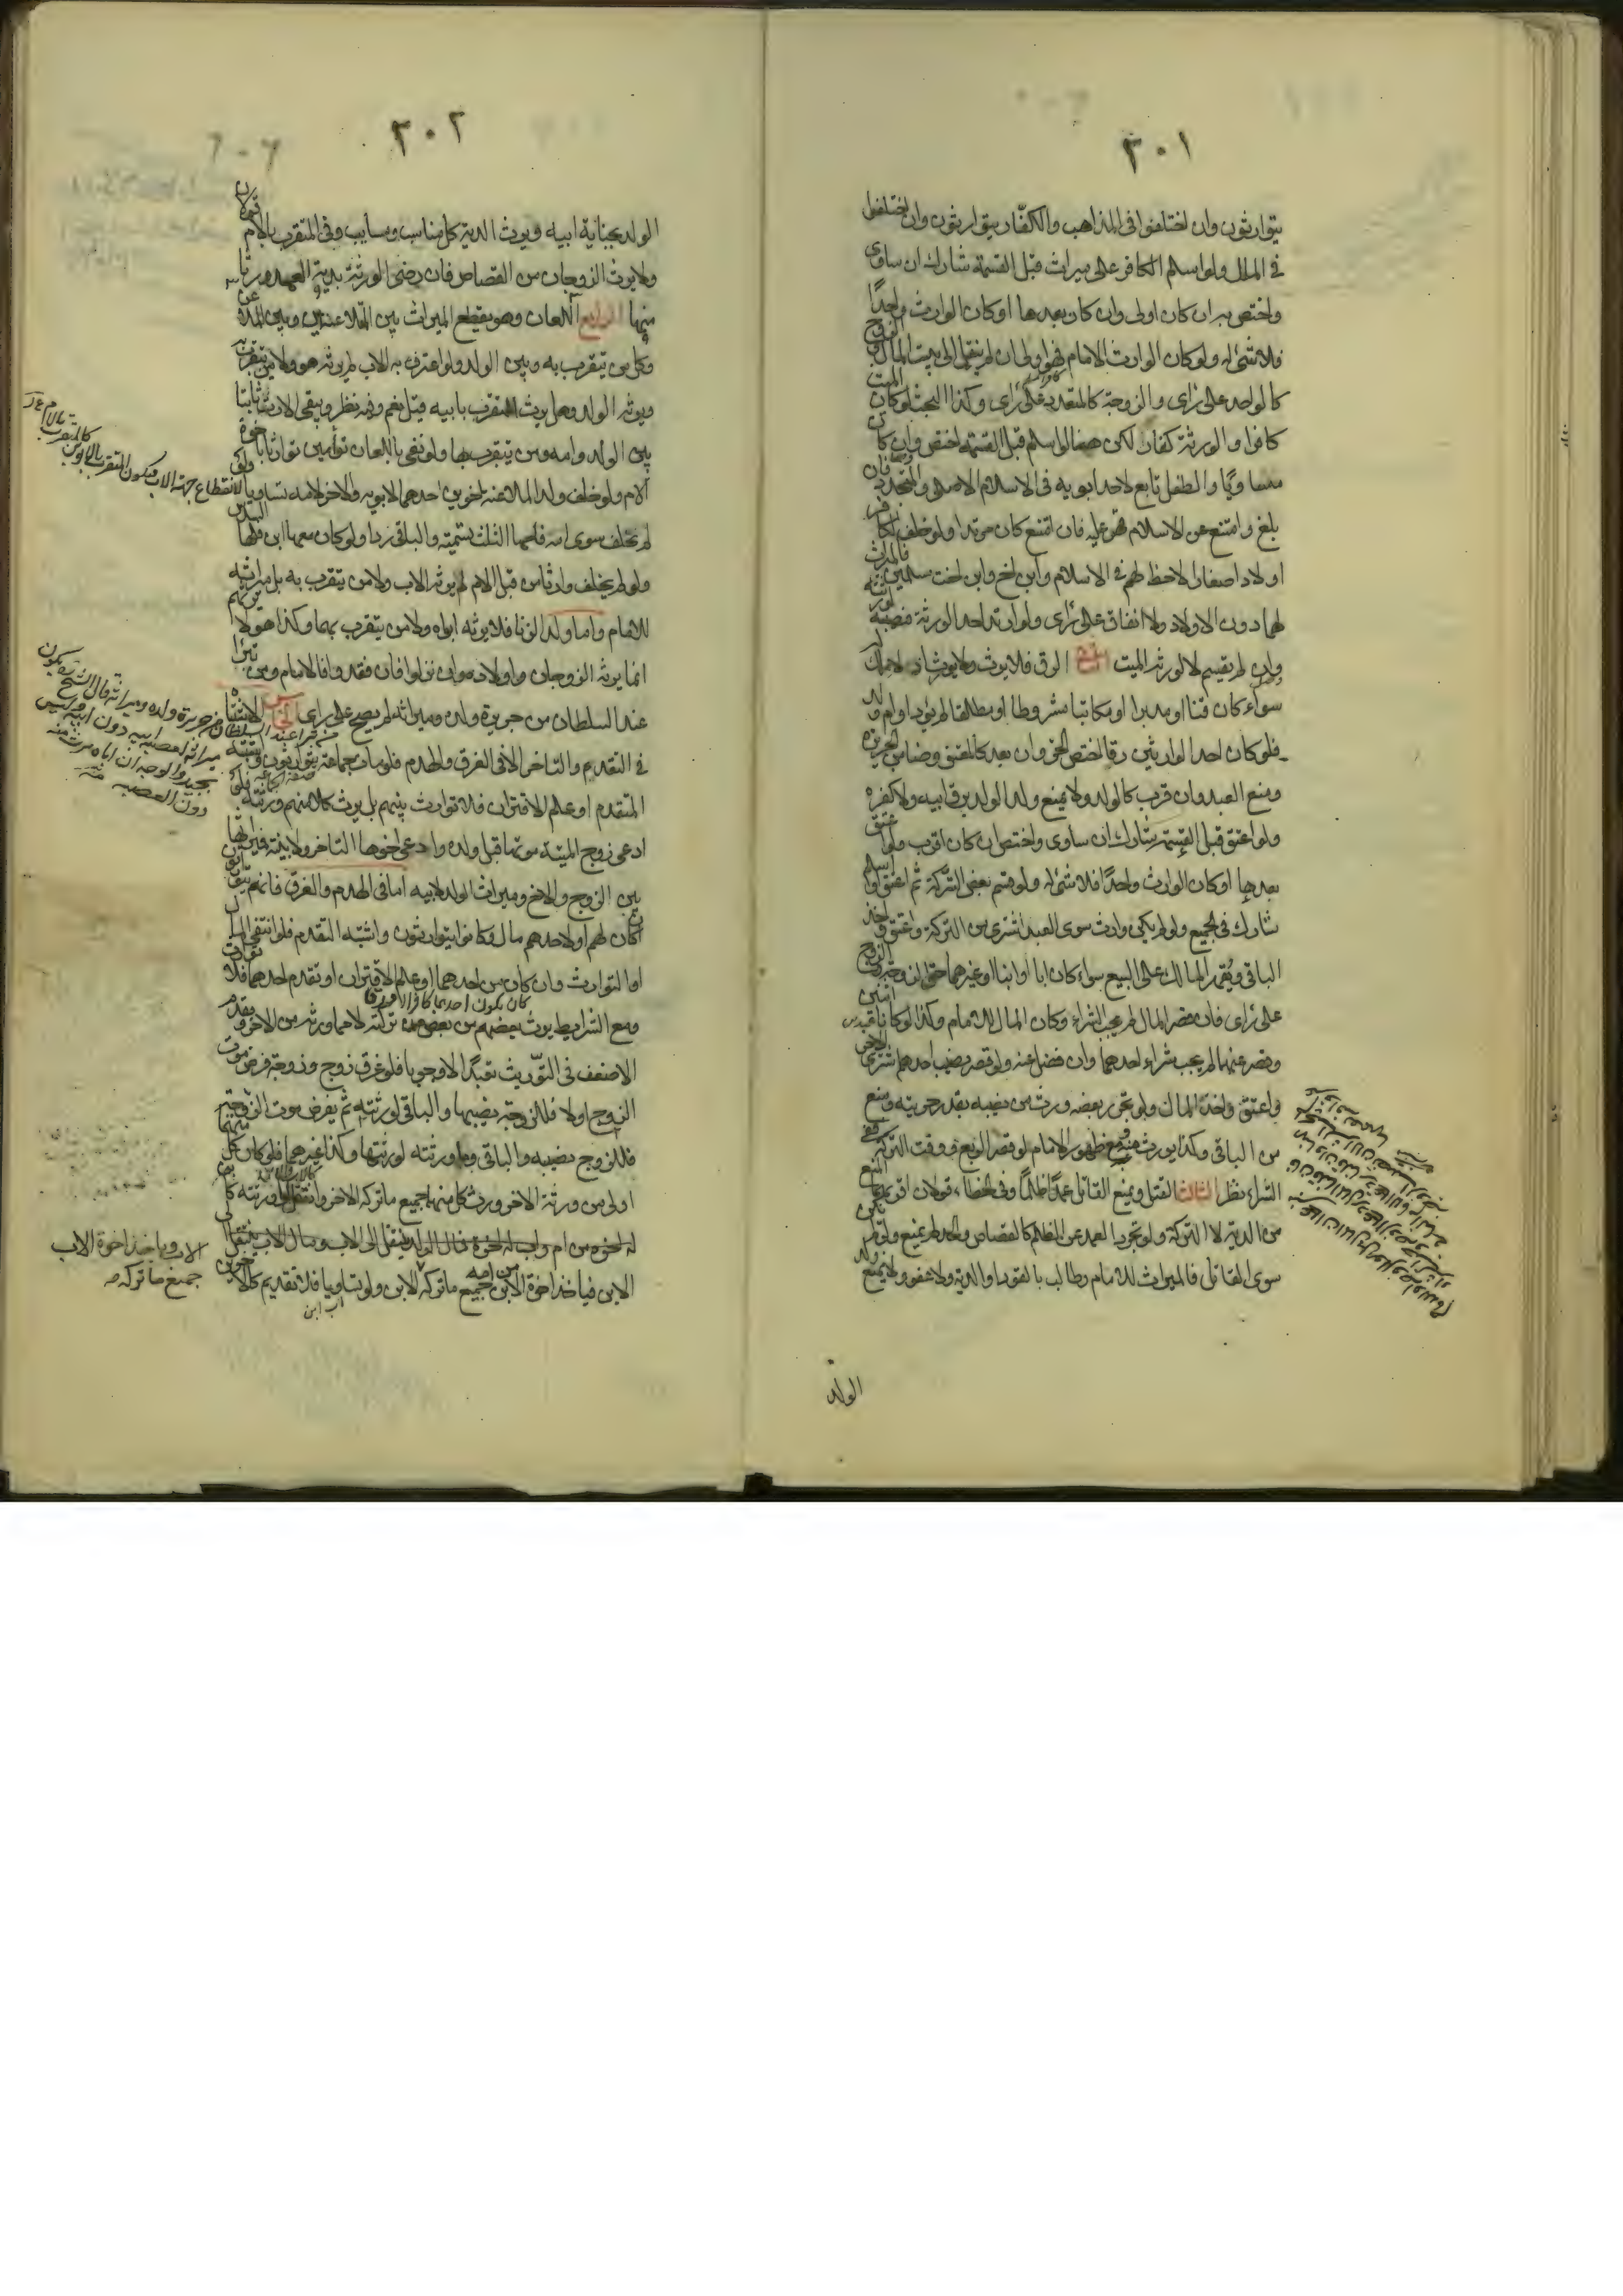 ٣٠١
يتوارثون وان اختلفوا فى المذاهب والكفّار يتوارثون وان اختلفوا
فى الملل ولو اسلم الكافر على ميراث قبل القسمة شارك ان ساوى
واختص به ان كان اولى وان كان بعدها او كان الوارث واحدًا
فلا شئ له ولو كان الوارث الامام فهو اولى ان لم ينقل الى بيت المال والزوج
كالواحد على رأى والزوجة كالمتعدد على رأى وكذا البحث لو كان الميت
كافرا والورثة كفار لكن هنا لو اسلم قبل القسمة اختص وان كان
مساويًا والطفل تابع لاحد ابويه فى الاسلام الاصلى والمتجدد فان
بلغ وامتنع عن الاسلام قهر عليه فان امتنع كان مرتدا ولو خلف الكافر
اولادا صغارا لاحظ لهم فى الاسلام وابن اخ وابن اخت مسلمين فالميراث
لهما دون الاولاد ولا انفاق على رأى ولو ارتد احد الورثة فنصيبه لورثته
وان لم يقسم لا لورثة الميت الرق فلا يورث ولا يرث اذ لا ملك له
سواء كان قنا او مدبرا او مكاتبا مشروطا او مطلقا لم يؤد او ام ولد
فلو كان احد الوارثين رقا اختص الحر وان بعد كالمعتق وضامن الجريرة
ومنع العبد وان قرب كالولد ولا يمنع ولد الولد برق ابيه ولا كفره
ولو اعتق قبل القسمة شارك ان ساوى واختص ان كان اقرب ولو اعتق
بعدها او كان الوارث واحدًا فلا شئ له ولو قسم بعض التركة ثم اعتق او اسلم
شارك فى الجميع ولو لم يكن وارث سوى العبد اشترى من التركة واعتق واخذ
الباقى ويقهر المالك على البيع سواء كان ابا او ابنا او غيرهما حتى الزوجة والزوج
على رأى فان قصر المال لم يجب الشراء وكان المال للامام وكذا لو كانا اثنين
وقصر عنهما لم يجب شراء احدهما وان فضل عنه ولو قصر نصيب احدهم اشترى الاخر
واعتق واخذ المال ولو تحرر بعضه ورث من نصيبه بقدر حريته ومنع
من الباقى وكذا يورث منه ومع ظهور الامام لو قصر الربع ووقت التركة ففى
الشراء نظر الثالث القتل ويمنع القاتل عمدًا ظلمًا وفى الخطاء قولان اقربهما المنع
من الدية لا التركة ولو تجرد العمد عن الظلم كالقصاص والحد لم يمنع ولو لم يكن
سوى القاتل فالميراث للامام وطالب بالقود او الدية ولا عفو ولا يمنع ولد
الولد
٣٠٢
الولد بجناية ابيه ويرث الدية كل مناسب ومسابب وفى المتقرب بالام قولان
ولا يرث الزوجان من القصاص فان رضى الورثة بدية العمد ورثا
منها الرابع اللعان وهو يقطع الميراث بين المتلاعنين وبين الملاعن
وكل من يتقرب به وبين الولد ولو اعترف به الاب لم يرثه هو ولا من يتقرب به
ويرثه الولد وهل يرث المتقرب بابيه قيل نعم وفيه نظر ويبقى الارث ثابتا
بين الولد وامه ومن يتقرب بها ولو نفى باللعان توأمين توارثا باخوة
الام ولو خلف ولد الملاعنة اخوين احدهما لابويه والاخر لامه تساويا ولو
لم يخلف سوى امه فلها الثلث بتسمية والباقى ردا ولو كان معها ابن فلها السدس
ولو لم يخلف وارثا من قبل الام لم يرثه الاب ولا من يتقرب به بل ميراثه
للامام واما ولد الزنا فلا يرثه ابواه ولا من يتقرب بهما وكذا هو لا يرثهم
انما يرثه الزوجان واولاده وان نزلوا فان فقدوا فالامام ومن تبرأ
عند السلطان من جريرة ولده وميراثه لم يصح على رأى الخامس الاشتباه
فى التقدم والتاخر الا فى الغرق والهدم فلو مات جماعة يتوارثون واشتبه
المتقدم او علم الاقتران فلا توارث بينهم بل يرث كلا منهم ورثته فلو
ادعى زوج الميتة موتها قبل ولده وادعى اخوها التاخر ولا بينة فميراثها
بين الزوج والاخ وميراث الولد لابيه اما فى الهدم والغرق فانهم يتوارثون
ان كان لهم او لاحدهم مال وكانوا يتوارثون واشتبه التقدم فلو انتفى المال
او التوارث وان كان من احدهما او علم الاقتران او تقدم احدهما فلا توارث
كان يكون احدهما كافرا او رقا
ومع الشرايط يرث بعضهم من بعض من تركته لا مما ورثه من الاخر ويقدم
الاضعف فى التوريث تعبدًا لا وجوبا فلو غرق زوج وزوجة فرض موت
الزوج اولا فللزوجة نصيبها والباقى لورثته ثم يفرض موت الزوجة
فللزوج نصيبه والباقى وما ورثته لورثتها وكذا غيرهما فلو كان كل منهما
اولى من ورثة الاخر ورث كل منهما جميع ما تركه الاخر وانتقل الى ورثته كاب
له اخوة من ام وابن له اخوة فمال الولد ينتقل الى الاب ومال الاب ينتقل الى
الابن فياخذ اخوة الاب جميع ما تركه الابن ولو تساويا فلا تقديم كالاخوين
لانقطاع جهة الاب فيكون المتقرب بالابوين
كالمتقرب بالام
من تبرأ عند السلطان من جريرة ولده وميراثه قال الشيخ يكون
ميراثه لعصبة ابيه دون ابيه وليس
بجيد والوجه ان اباه يرث منه
دون العصبة
الاب وياخذ اخوة الاب
جميع ما تركه